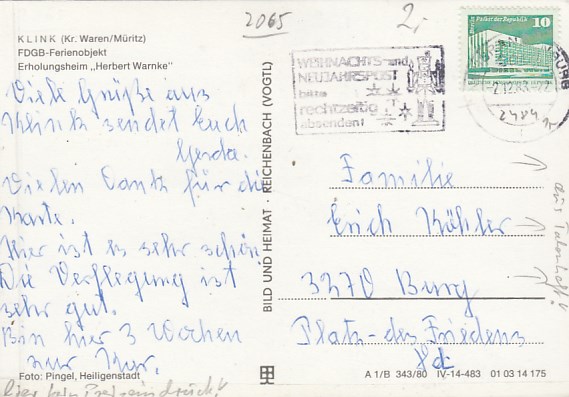 2065
2,-
KLINK (Kr. Waren/Müritz)
FDGB-Ferienobjekt
Erholungsheim „Herbert Warnke"
Viele Grüße aus
Klink sendet Euch
Gerda.
Vielen Dank für die
Karte.
Hier ist es sehr schön
Die Verflegung ist
sehr gut.
Bin hier 3 Wochen
zur Kur.
Foto: Pingel, Heiligenstadt
BILD UND HEIMAT · REICHENBACH (VOGTL)
WEIHNACHTS- und
NEUJAHRSPOST
bitte
rechtzeitig
absenden!
Berlin Palast der Republik
10
Familie
Erich Köhler
3270 Burg
Platz-des-Friedens
A 1/B 343/80 IV-14-483 01 03 14 175